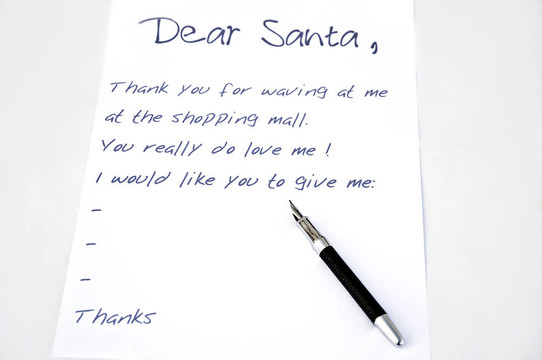 Dear Santa,
Thank you for waving at me
at the shopping mall.
You really do love me!
I would like you to give me:
-
-
-
Thanks